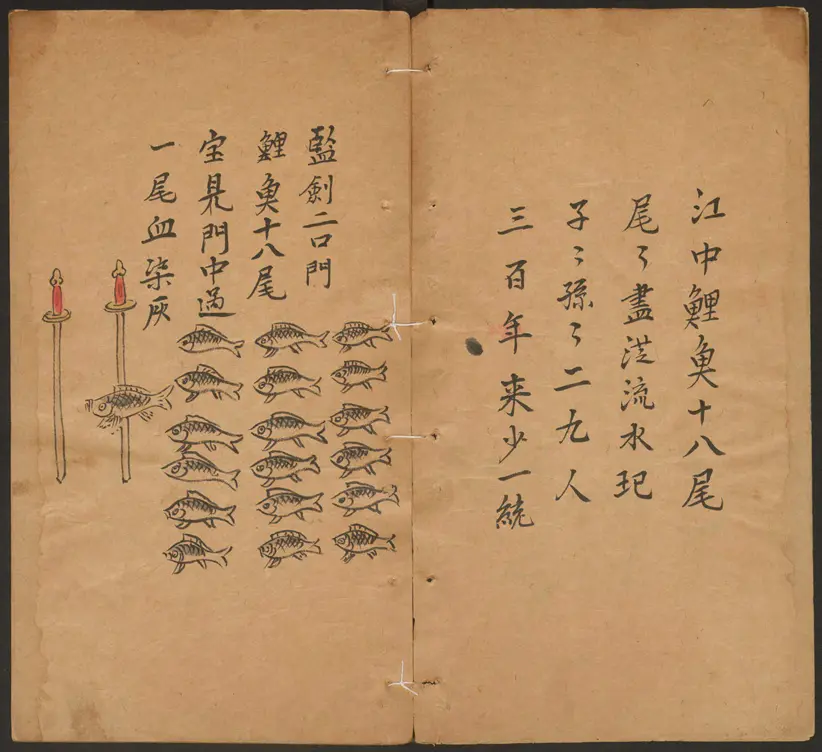 江中鯉魚十八尾
尾〻盡流水玘
子〻孫〻二九人
三百年来少一統
監劍二口門
鯉魚十八尾
宝門中過
一尾血染灰